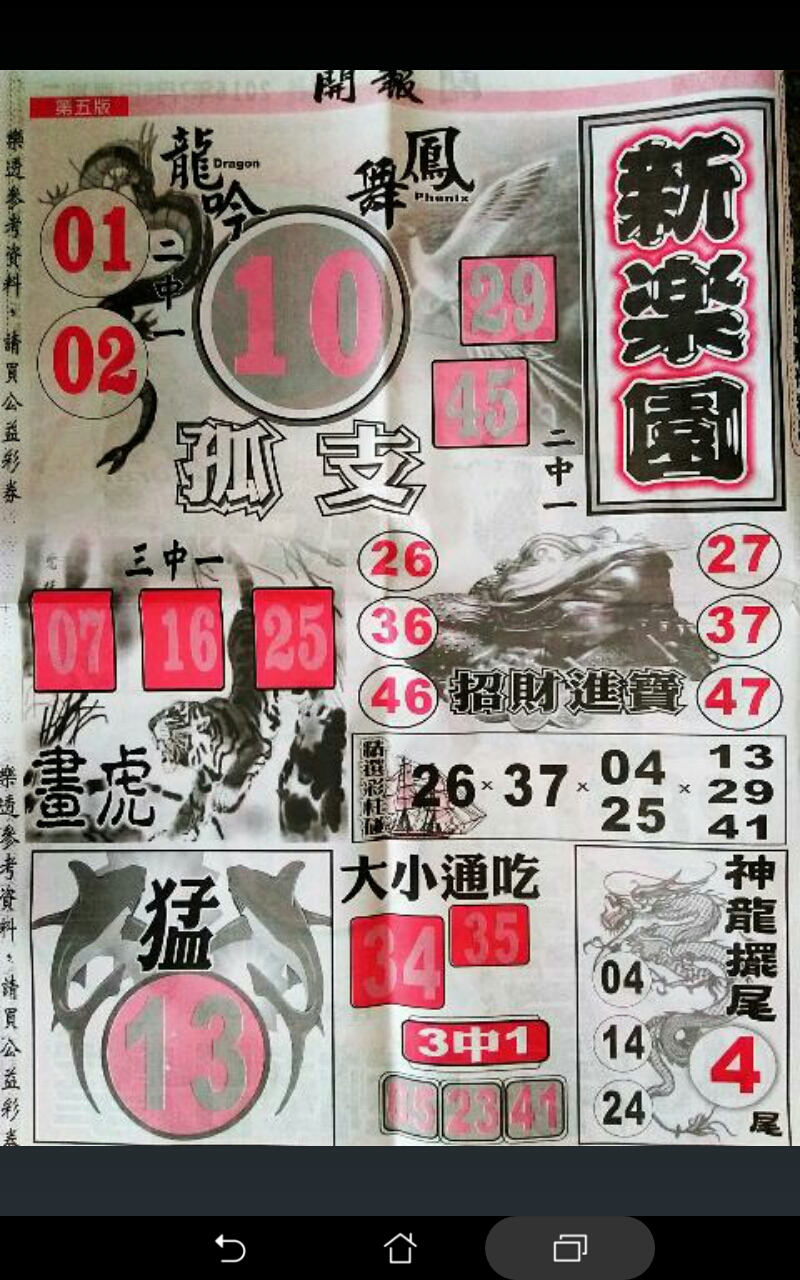 開報
第五版
樂透參考資料，請買公益彩券
龍吟
Dragon
鳳舞
Phenix
新楽園
01
02
二中一
10
孤支
29
45
二中一
三中一
07 16 25
畫虎
26 27
36 37
46 47
招財進寶
26 × 37 × 04 25 × 13 29 41
樂透參考資料，請買公益彩券
猛
13
大小通吃
34 35
3中1
23 41
神龍擺尾
04
14
24
4
尾